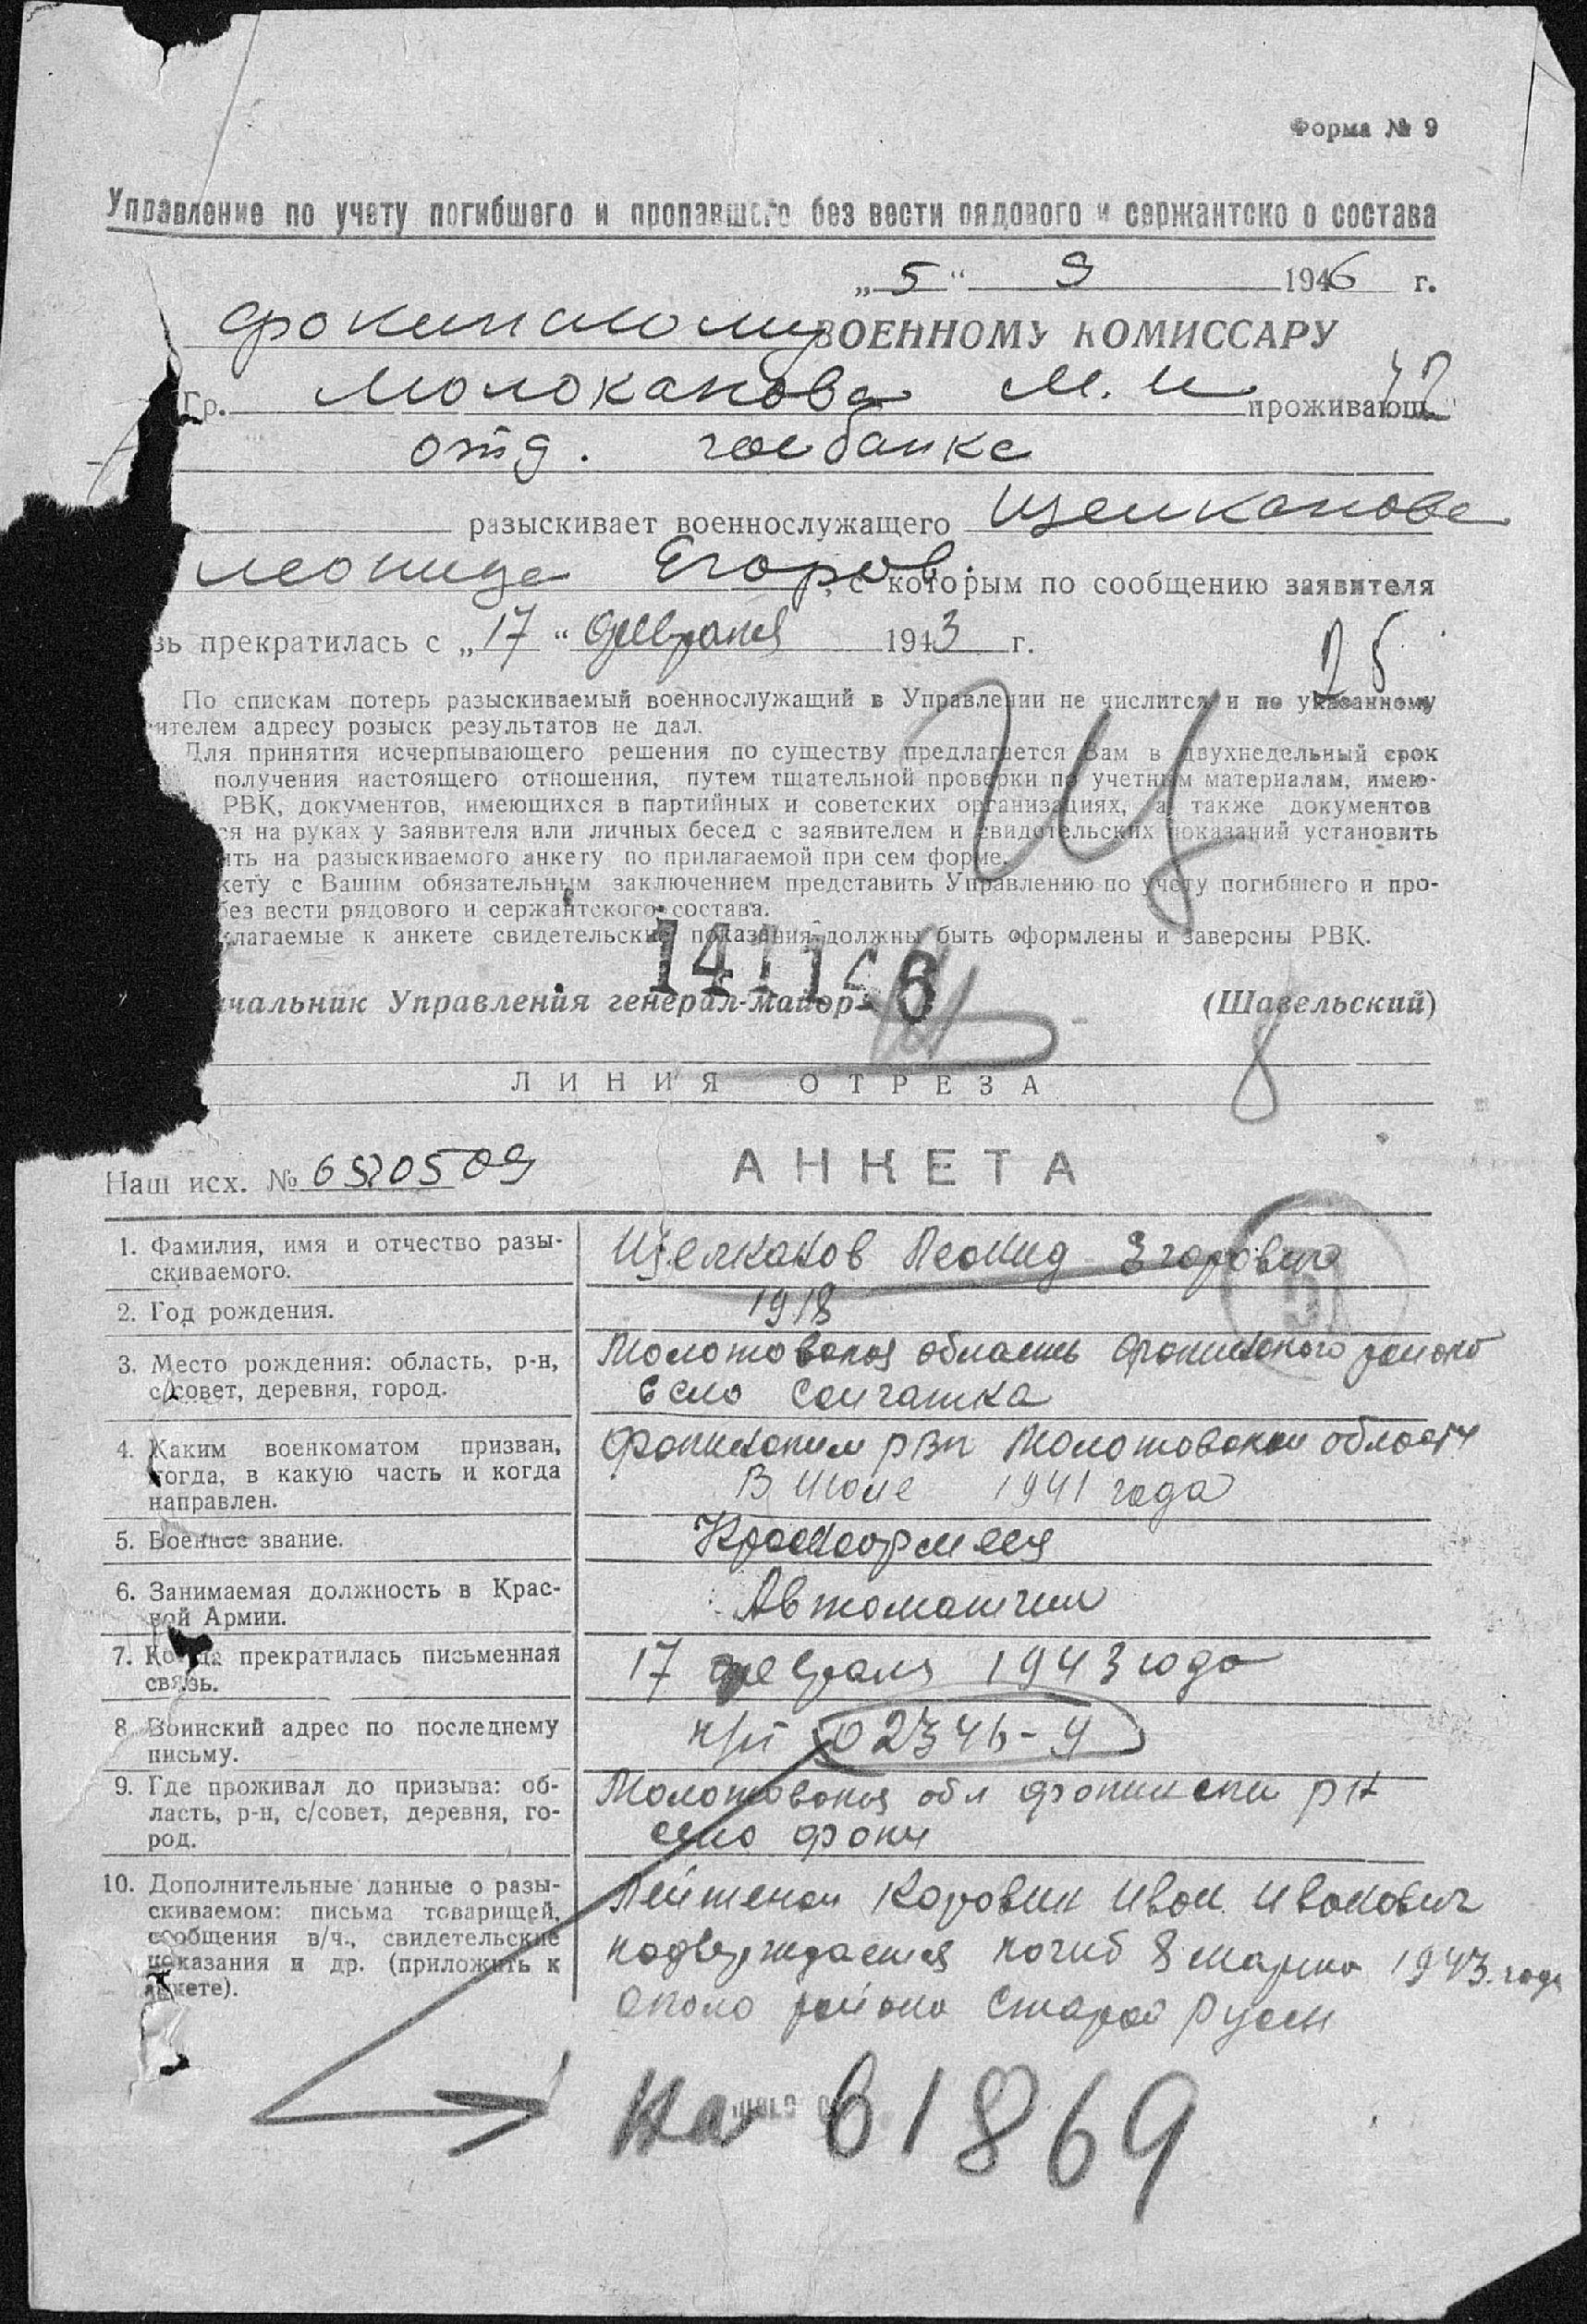 Форма № 9
Управление по учету погибшего и пропавшего без вести рядового и сержантско о состава
„5“ 9 1946 г.
Фокинскому ВОЕННОМУ КОМИССАРУ
Гр. Молоканова М. И проживающ
отд. госбанка
разыскивает военнослужащего Щелканова
Леонида Егоров. , с которым по сообщению заявителя
зь прекратилась с „17“ февраля 1943 г.
25
По спискам потерь разыскиваемый военнослужащий в Управлении не числится и по указанному
ителем адресу розыск результатов не дал.
Для принятия исчерпывающего решения по существу предлагается Вам в двухнедельный срок
получения настоящего отношения, путем тщательной проверки по учетным материалам, имею-
РВК, документов, имеющихся в партийных и советских организациях, а также документов
ся на руках у заявителя или личных бесед с заявителем и свидетельских показаний установить
ить на разыскиваемого анкету по прилагаемой при сем форме.
кету с Вашим обязательным заключением представить Управлению по учету погибшего и про-
без вести рядового и сержантского состава.
лагаемые к анкете свидетельские показания должны быть оформлены и заверены РВК.
Щ
чальник Управления генерал-майор (Шавельский)
ЛИНИЯ ОТРЕЗА
Наш исх. № 6520509
АНКЕТА
1. Фамилия, имя и отчество разы-
скиваемого.
Щелканов Леонид Егорович
2. Год рождения.
1918
3. Место рождения: область, р-н,
с/совет, деревня, город.
Молотовская область Фокинского района
село Сайгатка
4. Каким военкоматом призван,
когда, в какую часть и когда
направлен.
Фокинским РВК Молотовской области
В июле 1941 года
5. Военное звание.
Красноармеец
6. Занимаемая должность в Крас-
ной Армии.
Автоматчик
7. Когда прекратилась письменная
связь.
17 февраля 1943 года
8. Воинский адрес по последнему
письму.
п/п 02346-Ч
9. Где проживал до призыва: об-
ласть, р-н, с/совет, деревня, го-
род.
Молотовская обл Фокинский р-н
село Фоки
10. Дополнительные данные о разы-
скиваемом: письма товарищей,
сообщения в/ч., свидетельские
показания и др. (приложить к
анкете).
Лейтенан Коровин Иван Иванович
подверждается погиб 8 марта 1943 года
около района Старой Русы
На 61869